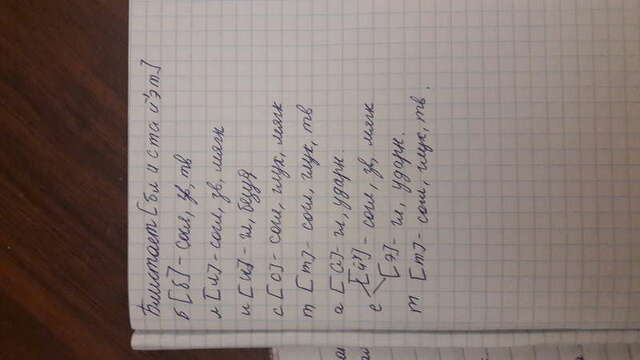 Блистает [бл и ста й'эт]
б [б] - согл, зв, тв
л [л] - согл, зв, мягк
и [и] - гл, безуд
с [с] - согл, глух, мягк
т [т] - согл, глух, тв
а [а] - гл, ударн.
е [й'] - согл, зв, мягк
[э] - гл, ударн.
т [т] - согл, глух, тв.